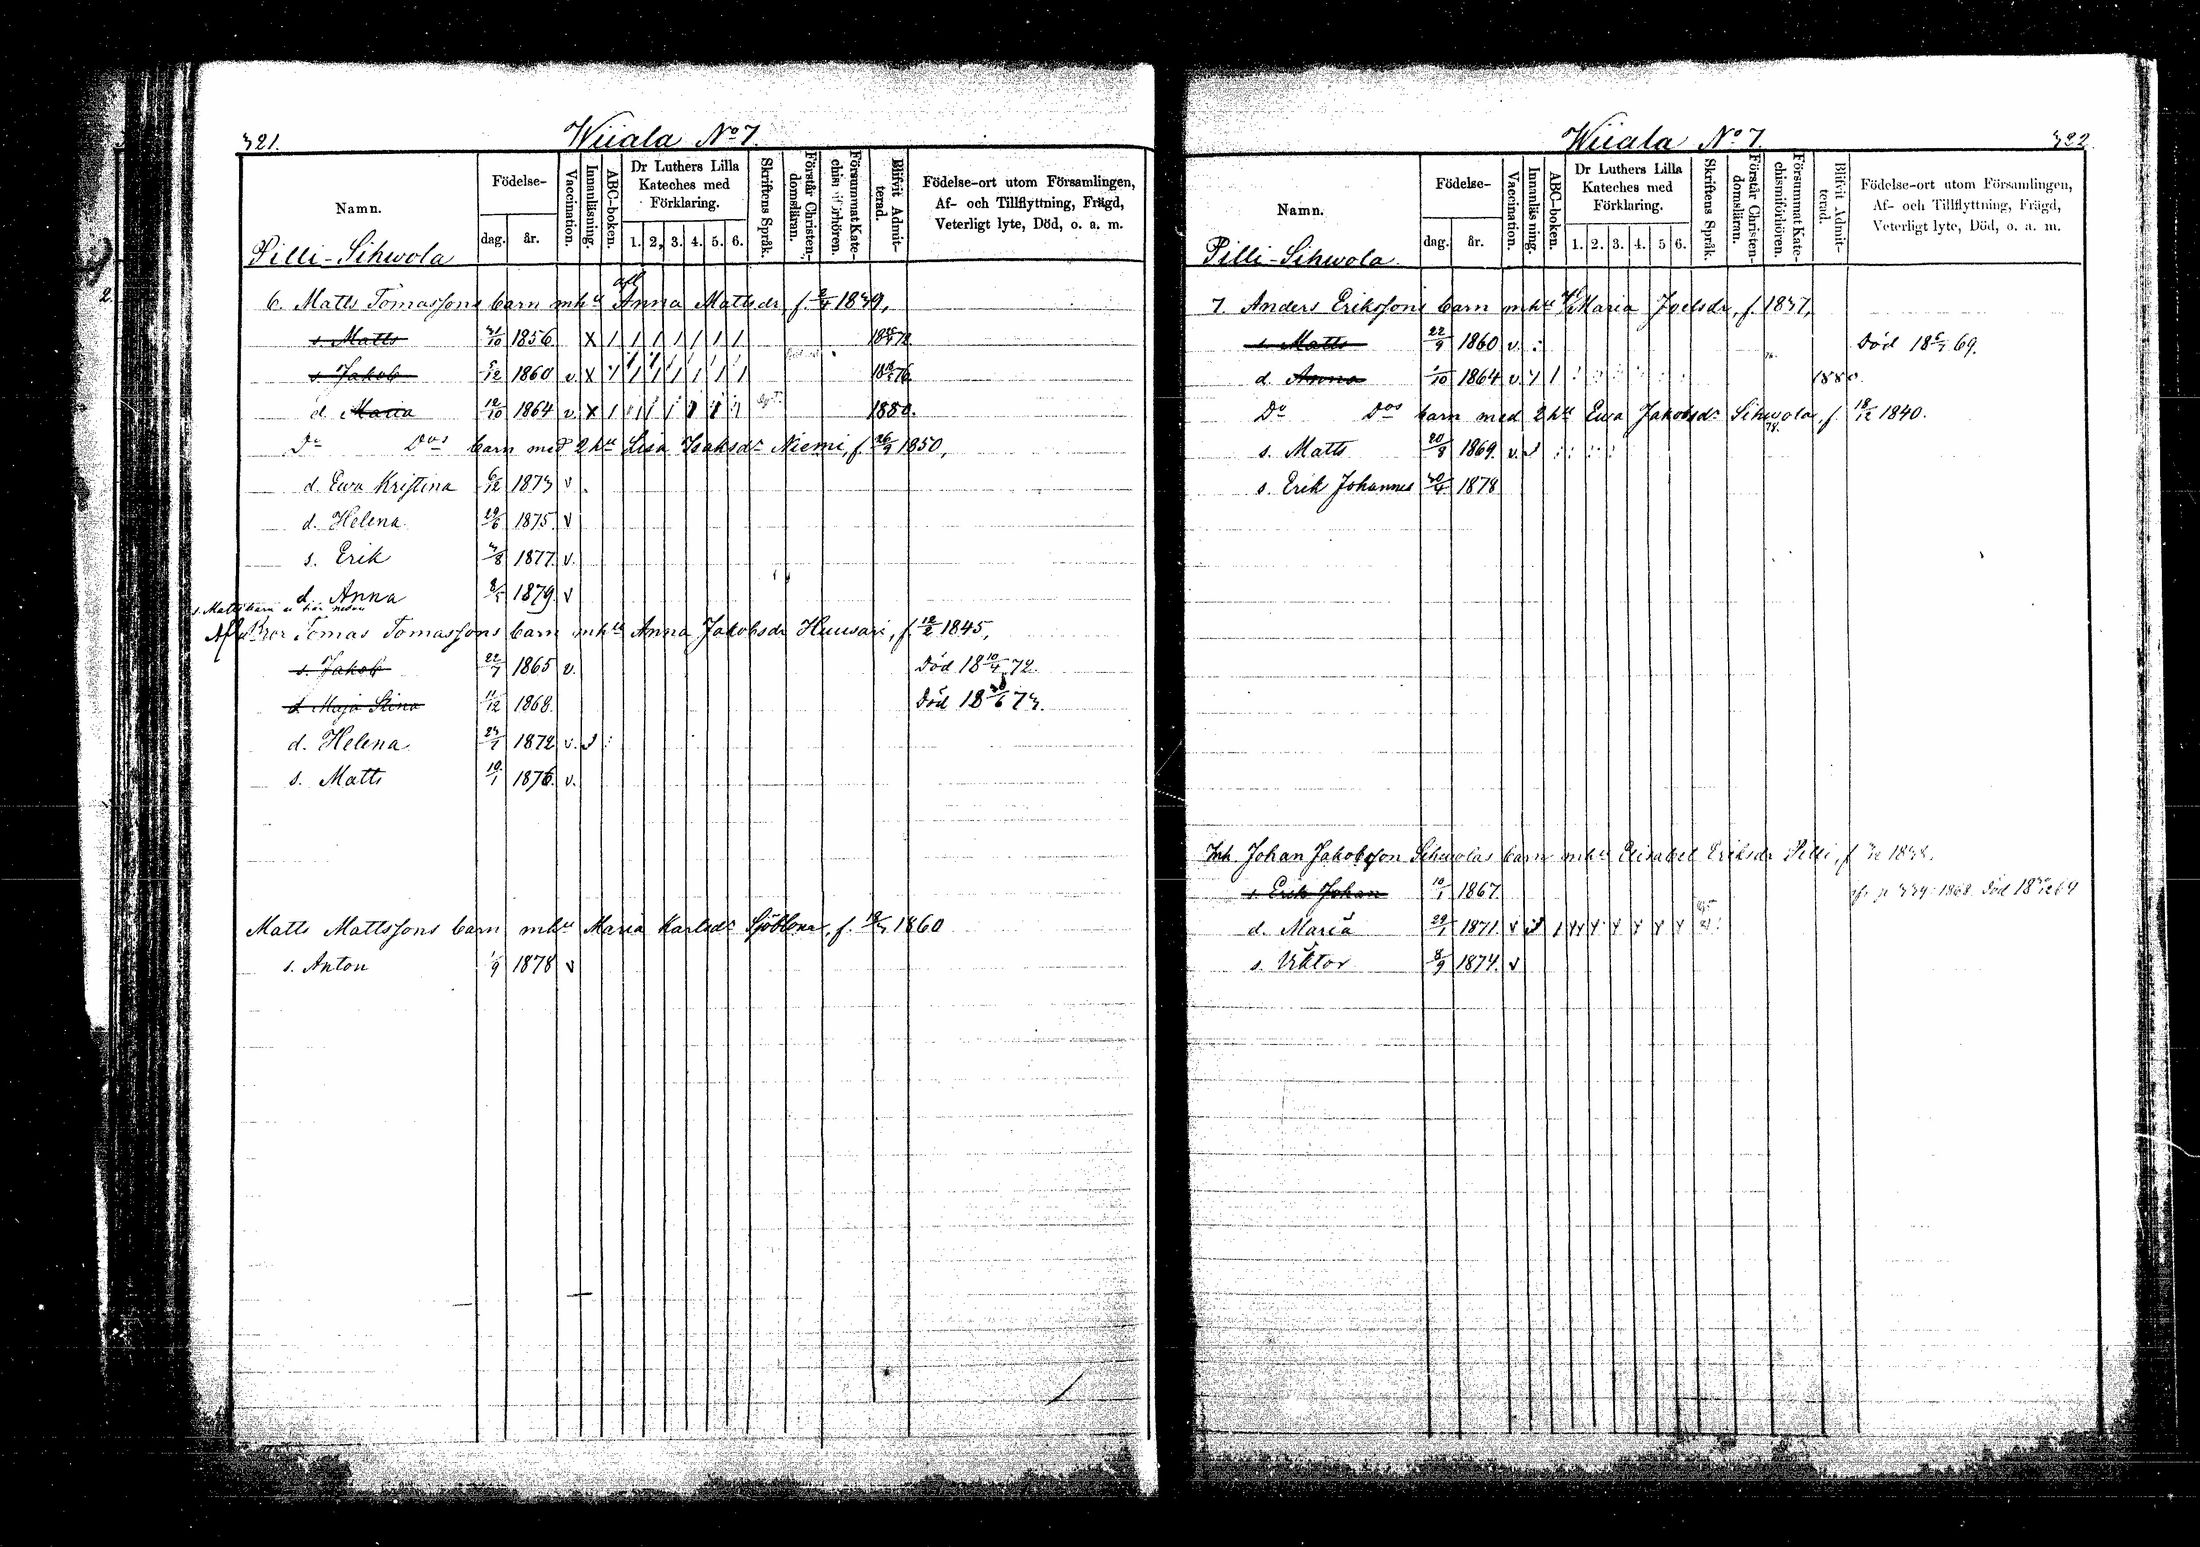 321.
Wiiala No 7.
Namn.
Födelse-
dag.
år.
Vaccination.
Innanläsning.
ABC-boken.
Dr Luthers Lilla
Kateches med
Förklaring.
1. 2, 3. 4. 5. 6.
Skriftens Språk.
Förstår Christen-
domsläran.
Försummat Kate-
chismiförhören.
Blifvit Admit-
terad.
Födelse-ort utom Församlingen,
Af- och Tillflyttning, Frägd,
Veterligt lyte, Död, o. a. m.
Pilli-Sihwola
2.
afl
6. Matts Tomassons barn mhu Anna Mattsdr, f. 2/4 1839,
s Matts 31/10 1856 X / / / / / / /
s Jakob 5/12 1860 v. X / / / / / / / 76
d Maria 12/10 1864 v X / / / / / / / 1880.
Do Dos barn med 2 hu Lisa Isaksdr Niemi, f. 26/9 1850,
d. Ewa Kristina 6/12 1873 v
d. Helena 29/6 1875. v
s. Erik 3/8 1877. v.
d. Anna 1879. v
s. Matts barn se här nedan
Afl Bror Tomas Tomassons barn mhu Anna Jakobsdr Huusari, f. 12/2 1845,
s. Jakob 22/7 1865 v. Död 18 10/4 72.
d. Maja Stina 11/12 1868. Död 18 30/6 73.
d. Helena 23/1 1872 v.
s. Matts 19/1 1876. v.
Matts Mattssons barn mhu Maria Karlsdr Sjöblom, f. 1860
s. Anton 1/9 1878 v
Wiiala No 7.
322
Namn.
Födelse-
dag.
år.
Vaccination.
Innanläsning.
ABC-boken.
Dr Luthers Lilla
Kateches med
Förklaring.
1. 2. 3. 4. 5 6.
Skriftens Språk.
Förstår Christen-
domsläran.
Försummat Kate-
chismförhören.
Blifvit Admit-
terad.
Födelse-ort utom Församlingen,
Af- och Tillflyttning, Frägd,
Veterligt lyte, Död, o. a. m.
Pilli-Sihwola.
7. Anders Erikssons barn mhu afl Maria Joelsdr, f. 1837,
s. Matts 22/9 1860 v. Död 69.
d. Anna 1/10 1864 v. 1880.
Do Dos barn med 2 hu Ewa Jakobsdr Sihwola, f. 18/12 1840.
78.
s. Matts 20/8 1869. v.
s. Erik Johannes 30/4 1878
Inh. Johan Jakobsson Sihwolas barn mhu Elisabet Eriksdr Pilli, f. 1838.
s. Erik Johan 10/1 1867. 1868 Död 69
d. Maria 29/1 1871. v
s. Viktor 8/9 1874. v